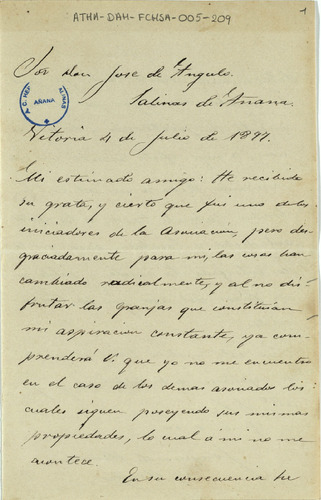 ATHA-DAH-FCHSA-005-209
1
Sor Don José de Angulo.
Salinas de Añana.
AÑANA
Vitoria 4 de Julio de 1897.
Mi estimado amigo: He recibido
su grata, y cierto que fui uno de los
iniciadores de la Asociación, pero des
graciadamente para mi, las cosas han
cambiado radicalmente, y al no dis-
frutar las granjas que constituían
mi aspiracion constante, ya com-
prenderá V. que yo no me encuentro
en el caso de los demas asociados los
cuales siguen poseyendo sus mismas
propiedades, lo cual á mi no me
acontece.
En su consecuencia he